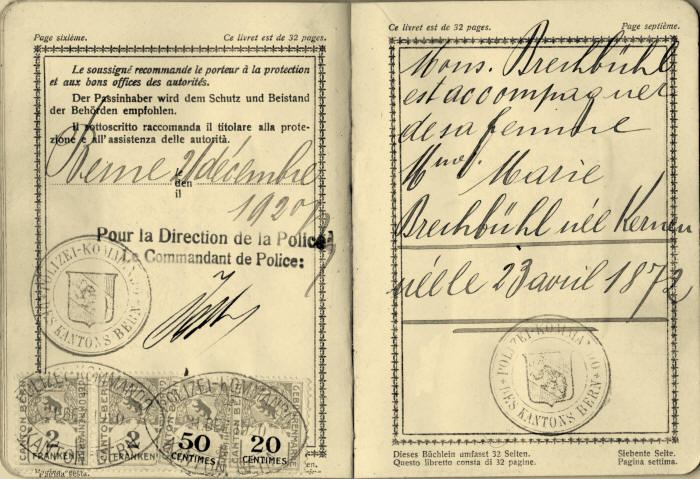 Page sixième. Ce livret est de 32 pages.
Le soussigné recommande le porteur à la protection
et aux bons offices des autorités.
Der Passinhaber wird dem Schutz und Beistand
der Behörden empfohlen.
Il sottoscritto raccomanda il titolare alla prote-
zione e all'assistenza delle autorità.
Berne, 21 décembre
den
il
1920
Pour la Direction de la Police
Le Commandant de Police:
POLIZEI-KOMMANDO
DES KANTONS BERN
POLIZEI-KOMMANDO
POLIZEI-KOMMANDO
CANTON BERN
2
FRANKEN
CANTON BERN
2
FRANKEN
CANTON BERN
50
CENTIMES
CANTON BERN
20
CENTIMES
Pagina sesta.
Ce livret est de 32 pages. Page septième.
Mons. Brechbühl
est accompagner
de sa femme
Mme. Marie
Brechbühl née Kernen
née le 23 avril 1872
POLIZEI-KOMMANDO
DES KANTONS BERN
Dieses Büchlein umfasst 32 Seiten. Siebente Seite.
Questo libretto consta di 32 pagine. Pagina settima.